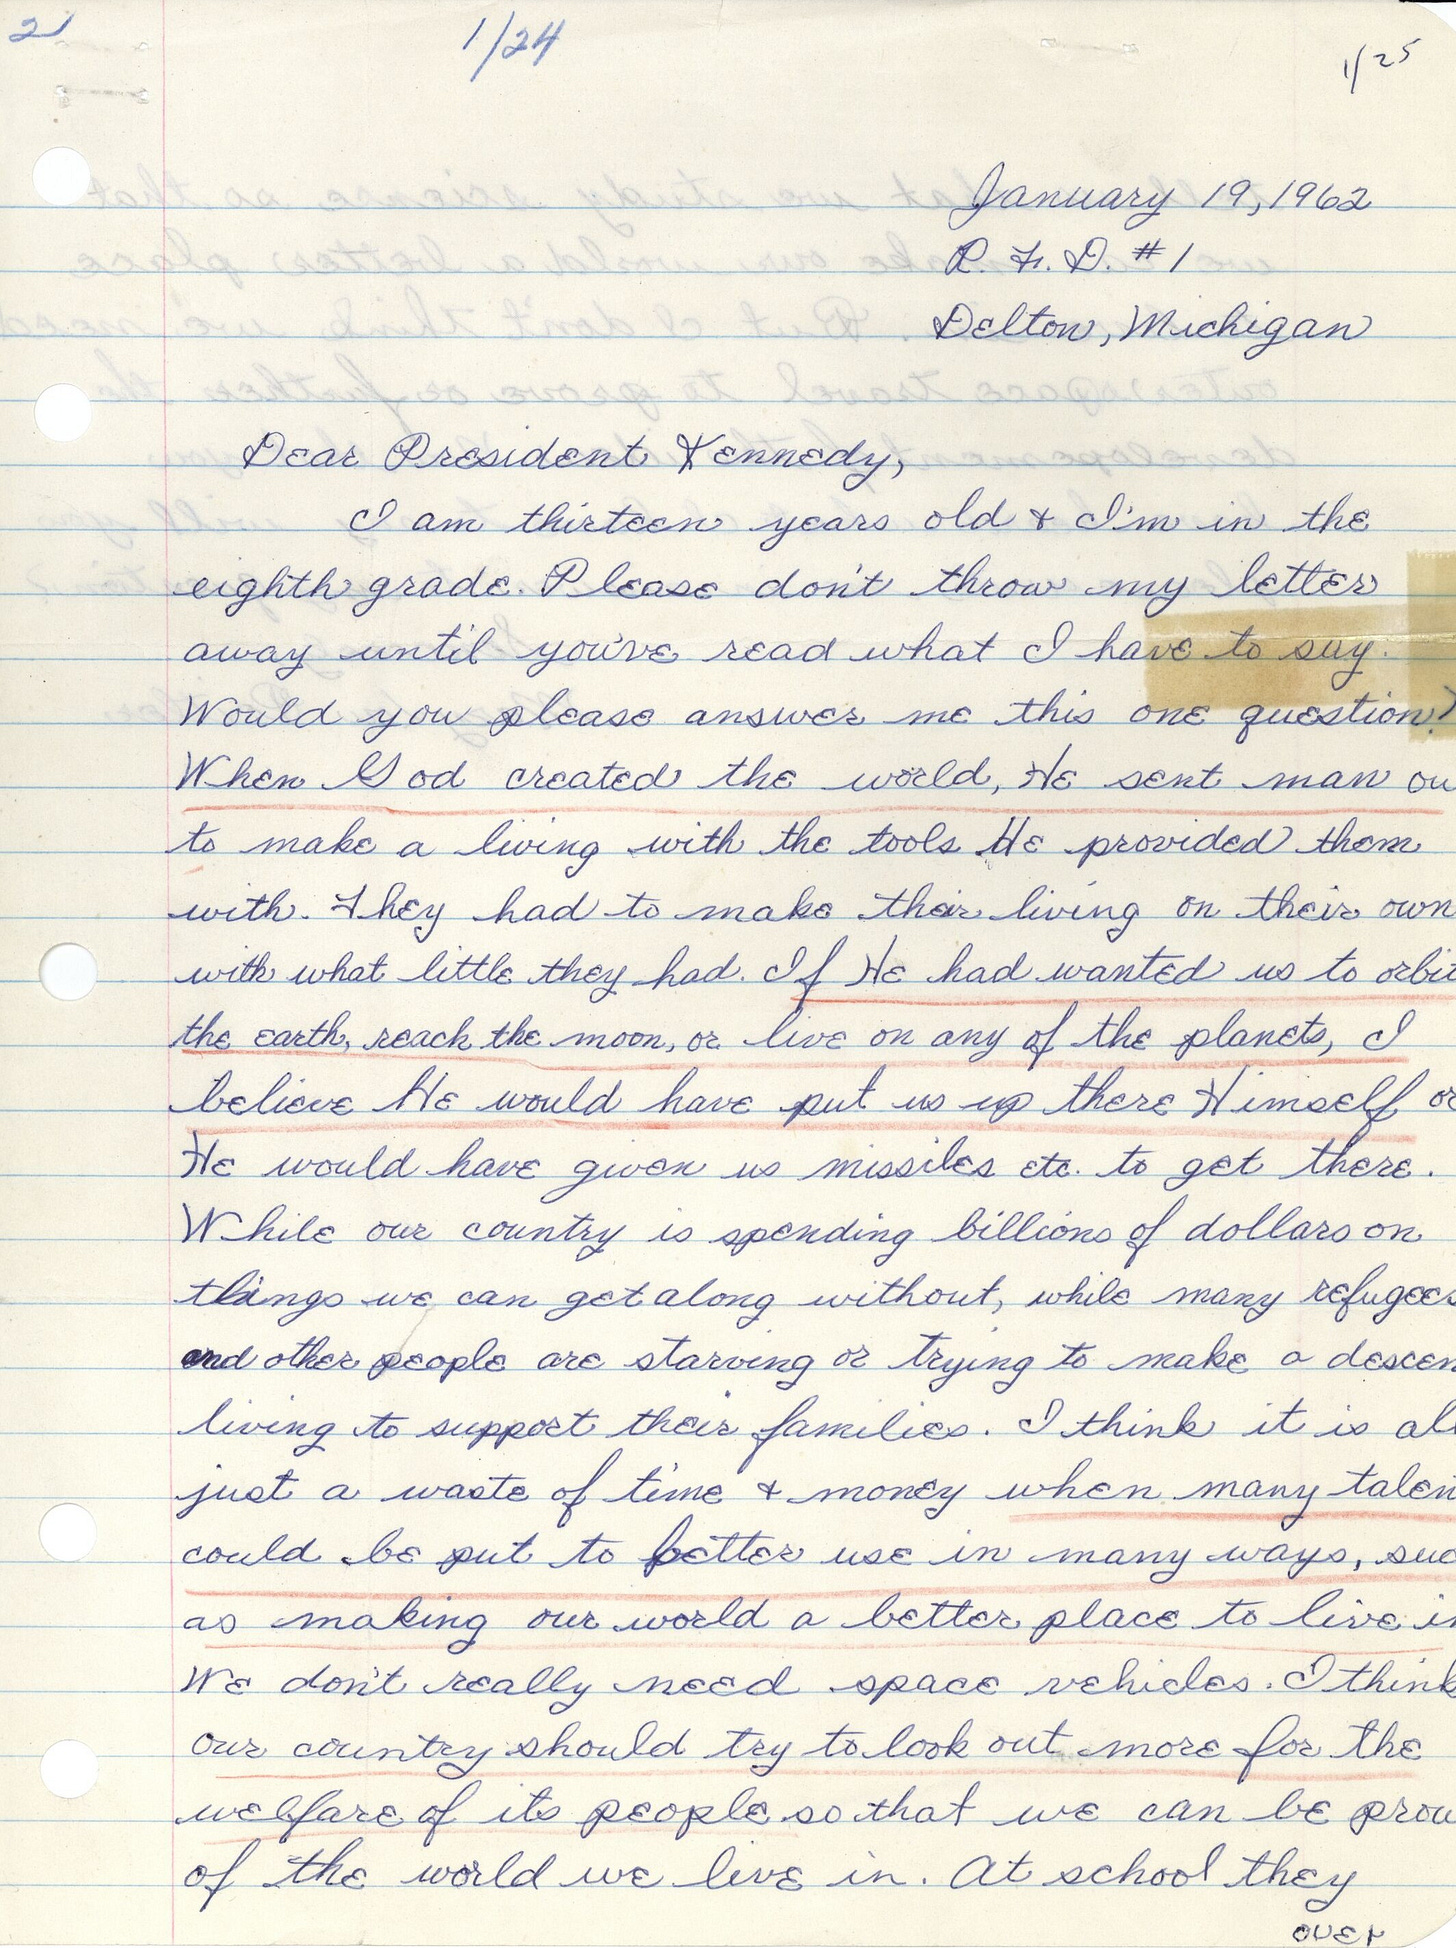 2
1/24
1/25
January 19, 1962
R. F. D. #1
Delton, Michigan
Dear President Kennedy,
I am thirteen years old & I'm in the
eighth grade. Please don't throw my letter
away until you've read what I have to say.
Would you please answer me this one question?
When God created the world, He sent man ou
to make a living with the tools He provided them
with. They had to make their living on their own
with what little they had. If He had wanted us to orbit
the earth, reach the moon, or live on any of the planets, I
believe He would have put us up there Himself or
He would have given us missiles etc. to get there.
While our country is spending billions of dollars on
things we can get along without, while many refugees
and other people are starving or trying to make a descen
living to support their families. I think it is all
just a waste of time & money when many talen
could be put to better use in many ways, suc
as making our world a better place to live in
We don't really need space vehicles. I think
our country should try to look out more for the
welfare of its people so that we can be prou
of the world we live in. At school they
over